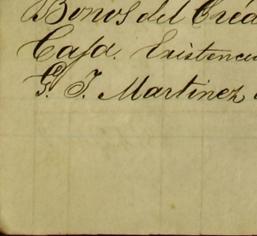 Bonos del Créd
Caja. Existenci
G. J. Martinez